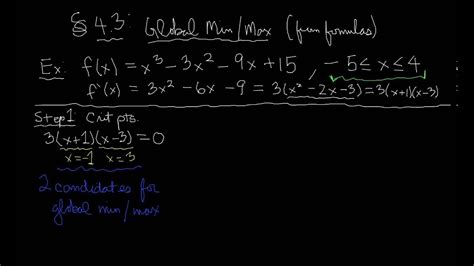 § 4.3: Global Min/Max (from formulas)
Ex: f(x) = x³ - 3x² - 9x + 15 , -5 ≤ x ≤ 4
f'(x) = 3x² - 6x - 9 = 3(x² - 2x - 3) = 3(x+1)(x-3)
Step 1 Crit pts.
3(x+1)(x-3) = 0
x=-1 x=3
2 candidates for
global min/max